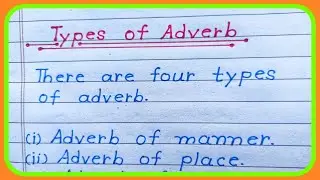 Types of Adverb
There are four types
of adverb.
(i) Adverb of manner.
(ii) Adverb of place.